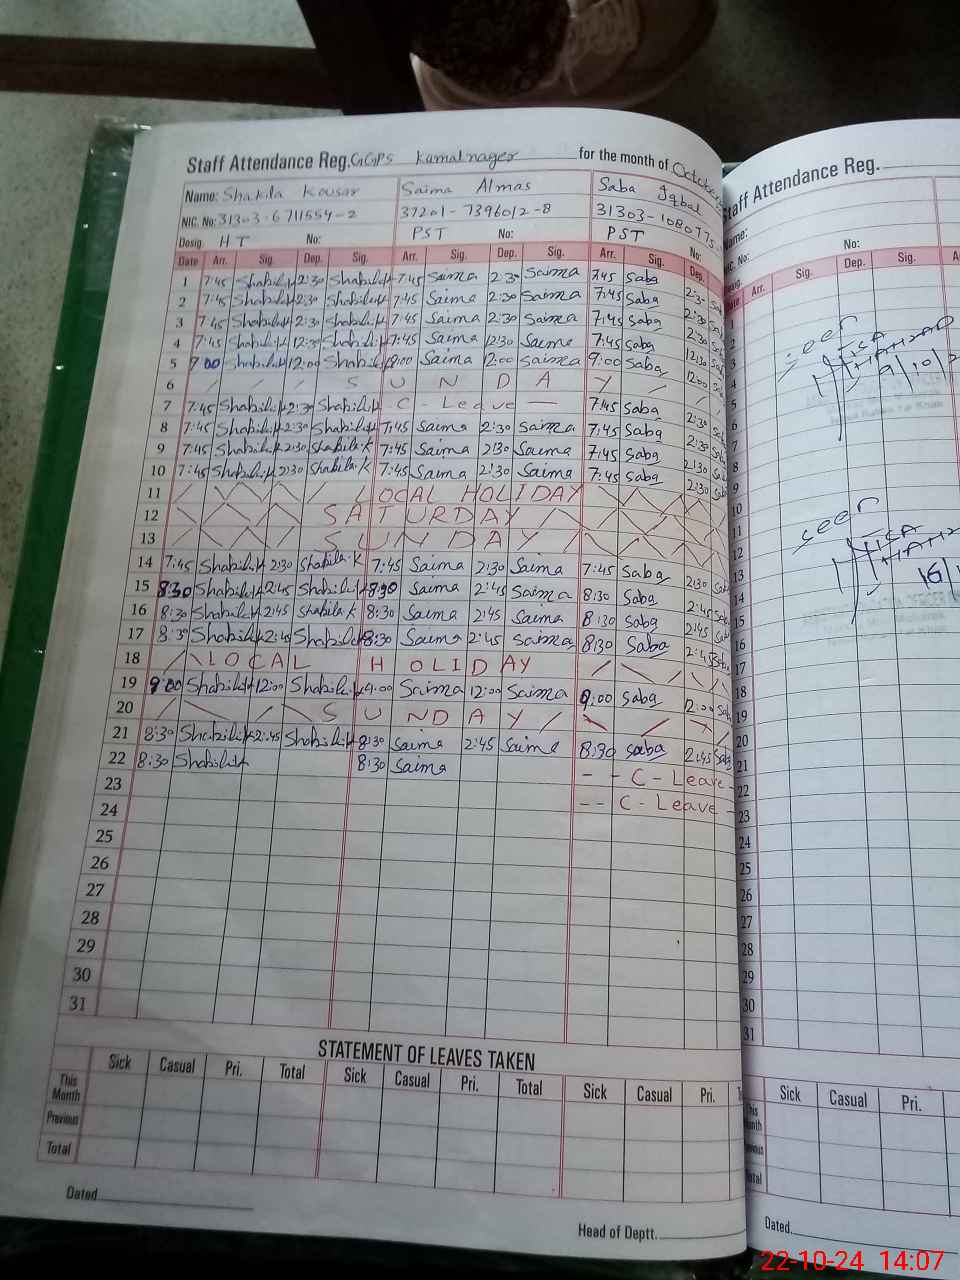 Staff Attendance Reg. GGPS Kamalnager for the month of October
Name: Shakila Kousar Saima Almas Saba Iqbal
NIC. No: 31303-6711554-2 37201-7396012-8 31303-108077
Desig. HT No: PST No: PST No:
Date Arr. Sig. Dep. Sig. Arr. Sig. Dep. Sig. Arr. Sig. Dep.
1 7:45 Shakila.K 2:30 Shakila.K 7:45 Saima 2:30 Saima 7:45 Saba 2:30
2 7:45 Shakila.K 2:30 Shakila.K 7:45 Saima 2:30 Saima 7:45 Saba 2:30
3 7:45 Shakila.K 2:30 Shakila.K 7:45 Saima 2:30 Saima 7:45 Saba
4 7:45 Shakila.K 12:30 Shakila.K 7:45 Saima 12:30 Saima 7:45 Saba 12:30
5 Shakila.K 12:00 Shakila.K 9:00 Saima 12:00 Saima 9:00 Saba 12:00
6 SUNDAY
7 7:45 Shakila.K 2:30 Shakila.K C-Leave 7:45 Saba 2:30
8 7:45 Shakila.K 2:30 Shakila.K 7:45 Saima 2:30 Saima 7:45 Saba 2:30
9 7:45 Shakila.K 2:30 Shakila.K 7:45 Saima 2:30 Saima 7:45 Saba 2:30
10 7:45 Shakila.K 2:30 Shakila.K 7:45 Saima 2:30 Saima 7:45 Saba 2:30
11 LOCAL HOLIDAY
12 SATURDAY
13 SUNDAY
14 7:45 Shakila.K 2:30 Shakila.K 7:45 Saima 2:30 Saima 7:45 Saba 2:30
15 8:30 Shakila.K 2:45 Shakila.K 8:30 Saima 2:45 Saima 8:30 Saba 2:45
16 8:30 Shakila.K 2:45 Shakila.K 8:30 Saima 2:45 Saima 8:30 Saba 2:45
17 8:30 Shakila.K 2:45 Shakila.K 8:30 Saima 2:45 Saima 8:30 Saba 2:45
18 LOCAL HOLIDAY
19 9:00 Shakila.K 12:00 Shakila.K 9:00 Saima 12:00 Saima 9:00 Saba 12:00
20 SUNDAY
21 8:30 Shakila.K 2:45 Shakila.K 8:30 Saima 2:45 Saima 8:30 Saba 2:45
22 8:30 Shakila.K 8:30 Saima C-Leave
23 C-Leave
24
25
26
27
28
29
30
31
STATEMENT OF LEAVES TAKEN
Sick Casual Pri. Total Sick Casual Pri. Total Sick Casual Pri.
This Month
Previous
Total
Dated
Head of Deptt.
Staff Attendance Reg.
Name:
NIC. No:
Desig. No:
Date Arr. Sig. Dep. Sig.
1
2
3
4
5
6
7
8
9
10
11
12
13
14
15
16
17
18
19
20
21
22
23
24
25
26
27
28
29
30
31
seen
seen
Sick Casual Pri.
This Month
Previous
Total
Dated.
22-10-24 14:07